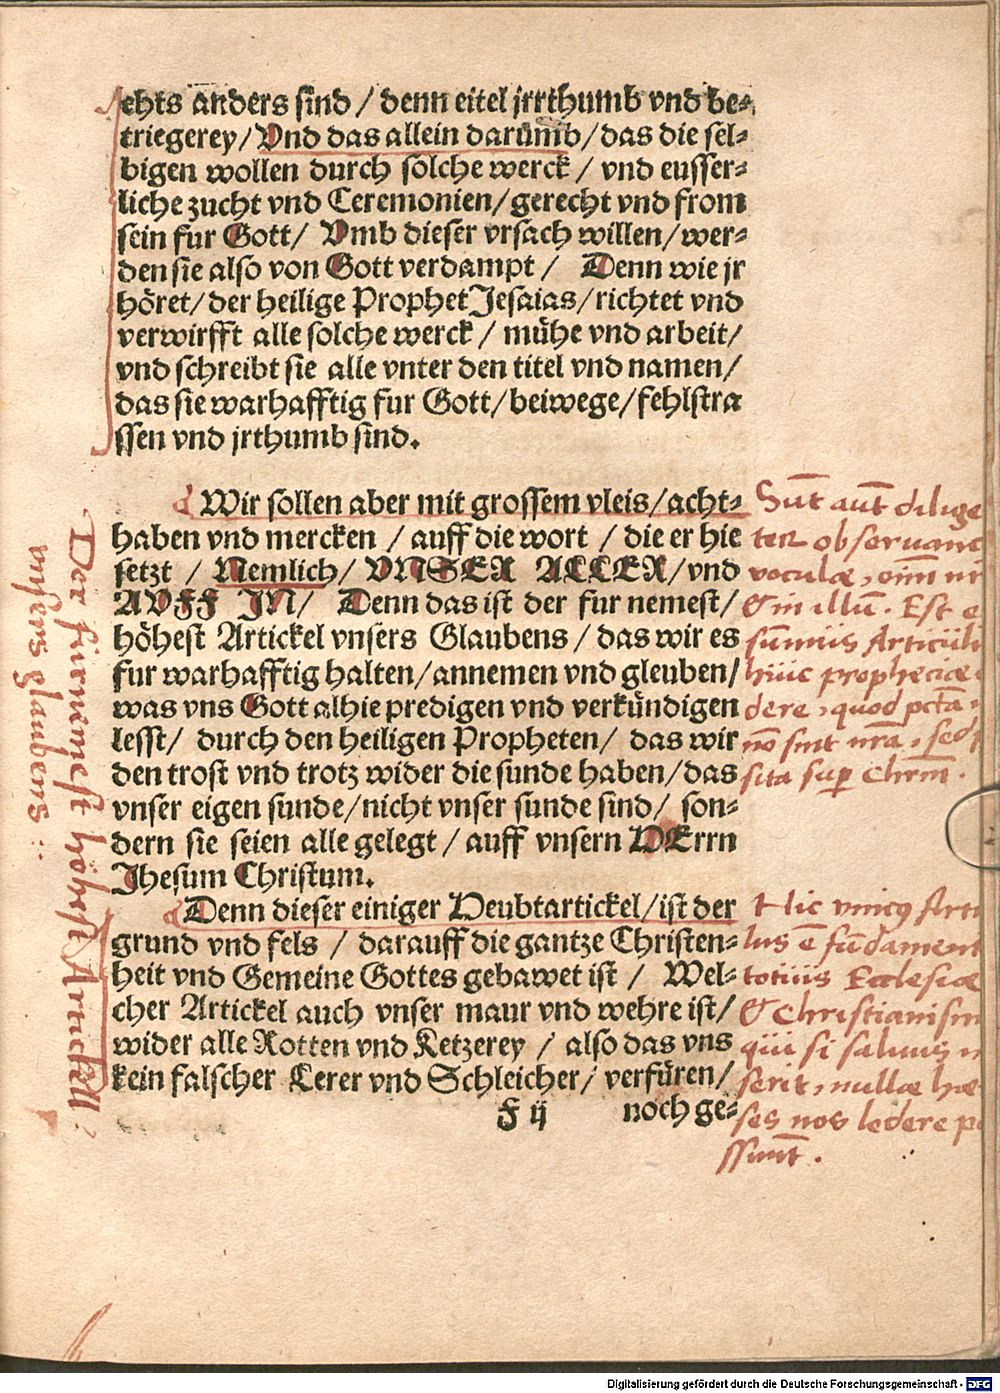 chts anders sind / denn eitel jrrthumb vnd be-
triegerey / Vnd das allein darümb / das die sel-
bigen wollen durch solche werck / vnd eusser-
liche zucht vnd Ceremonien / gerecht vnd from
sein fur Gott / Vmb dieser vrsach willen / wer-
den sie also von Gott verdampt / Denn wie jr
höret / der heilige Prophet Jesaias / richtet vnd
verwirfft alle solche werck / mühe vnd arbeit /
vnd schreibt sie alle vnter den titel vnd namen /
das sie warhafftig fur Gott / beiwege / fehlstra
ssen vnd jrthumb sind.
Wir sollen aber mit grossem vleis / acht-
haben vnd mercken / auff die wort / die er hie
setzt / Nemlich / VNSER ALLER / vnd
AVFF JN / Denn das ist der fur nemest /
höhest Artickel vnsers Glaubens / das wir es
fur warhafftig halten / annemen vnd gleuben /
was vns Gott alhie predigen vnd verkündigen
lesst / durch den heiligen Propheten / das wir
den trost vnd trotz wider die sunde haben / das
vnser eigen sunde / nicht vnser sunde sind / son-
dern sie seien alle gelegt / auff vnsern HErrn
Jhesum Christum.
Denn dieser einiger Heubtartickel / ist der
grund vnd fels / darauff die gantze Christen-
heit vnd Gemeine Gottes gebawet ist / Wel-
cher Artickel auch vnser maur vnd wehre ist /
wider alle Rotten vnd Ketzerey / also das vns
kein falscher Lerer vnd Schleicher / verfüren /
F ij noch ge-
Der furnemest höhest Artickell
vnsers glaubens
Sūt aūt dilige
ter observand
voculæ,
& in illū. Est
sūmus Articuli
huic propheciæ
dere, quod pctā
nō sint nrā, sed
sita sup Chrm̄.
Hic vnicꝯ Arti
lus ē fūdament
totius Ecclesiæ
& Christianism
qui si saluus
serit, nullæ hæ
ses nos ledere po
ssunt.
Digitalisierung gefördert durch die Deutsche Forschungsgemeinschaft - DFG